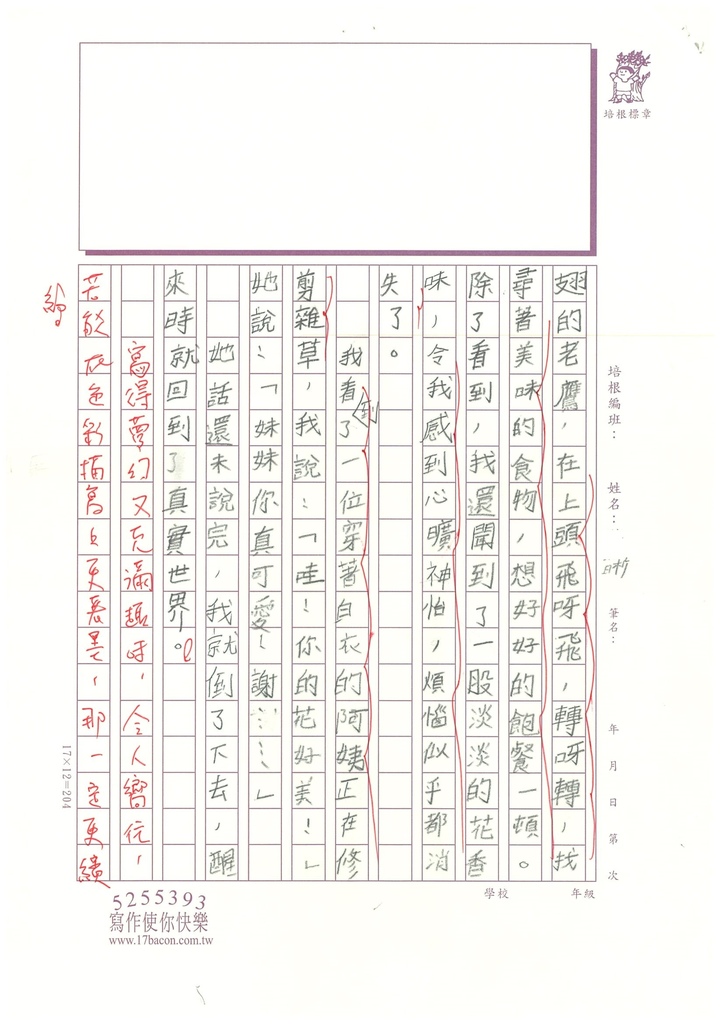 培根標章
培根編班：
姓名：
筆名：
年　月　日　第　次
學校
年級
翅的老鷹，在上頭飛呀飛，轉呀轉，找
尋著美味的食物，想好好的飽餐一頓。
除了看到，我還聞到了一股淡淡的花香
味，令我感到心曠神怡，煩惱似乎都消
失了。
我看到了一位穿著白衣的阿姨正在修
剪雜草，我說：「哇！你的花好美！」
她說：「妹妹你真可愛！謝……」
她話還未說完，我就倒了下去，醒
來時就回到了真實世界。
寫得夢幻又充滿趣味，令人嚮往，
若能在色彩描寫上更甚美，那一定更繽
紛。
17×12=204
5255393
寫作使你快樂
www.17bacon.com.tw